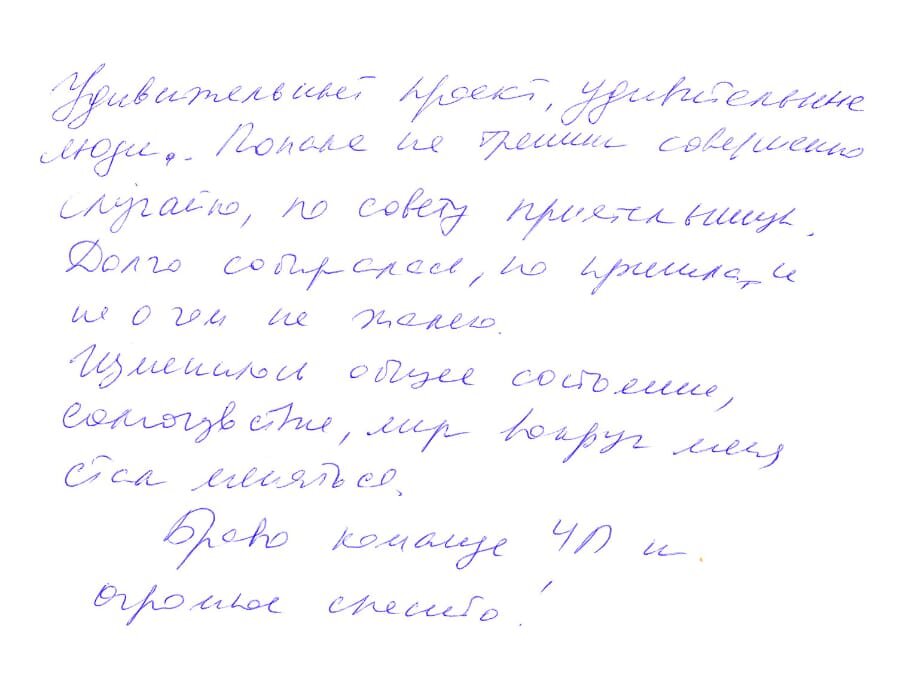 Удивительный проект, удивительные
люди. Попала на тренинг совершенно
случайно, по совету приятельницы.
Долго собиралась, но пришла, и
не о чем не жалею.
Изменилось общее состояние,
самочувствие, мир вокруг меня
стал меняться.
Браво команде ЧП и
огромное спасибо!